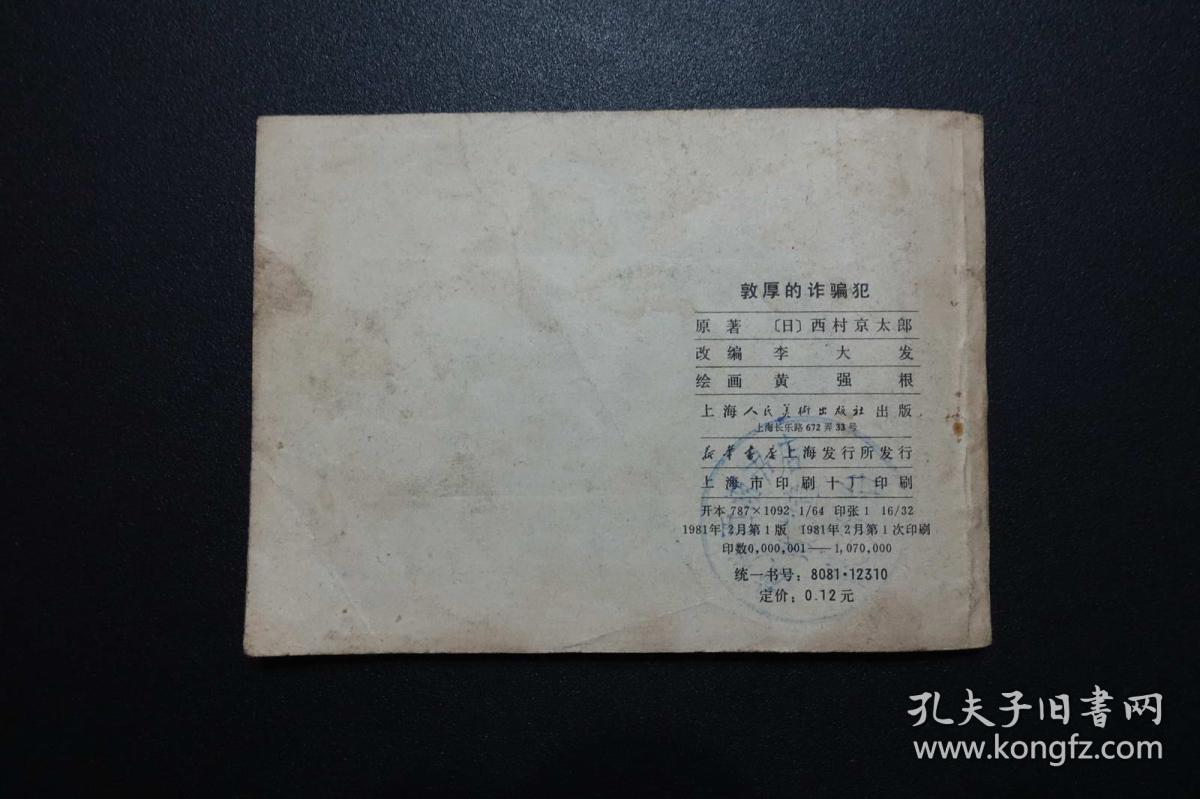 敦厚的诈骗犯
原著 〔日〕西村京太郎
改编 李大发
绘画 黄强根
上海人民美術出版社出版
上海长乐路672弄33号
新华書店上海发行所发行
上海市印刷十厂印刷
开本 787×1092 1/64 印张1 16/32
1981年2月第1版 1981年2月第1次印刷
印数0,000,001—1,070,000
统一书号：8081·12310
定价：0.12元
孔夫子旧书网
www.kongfz.com